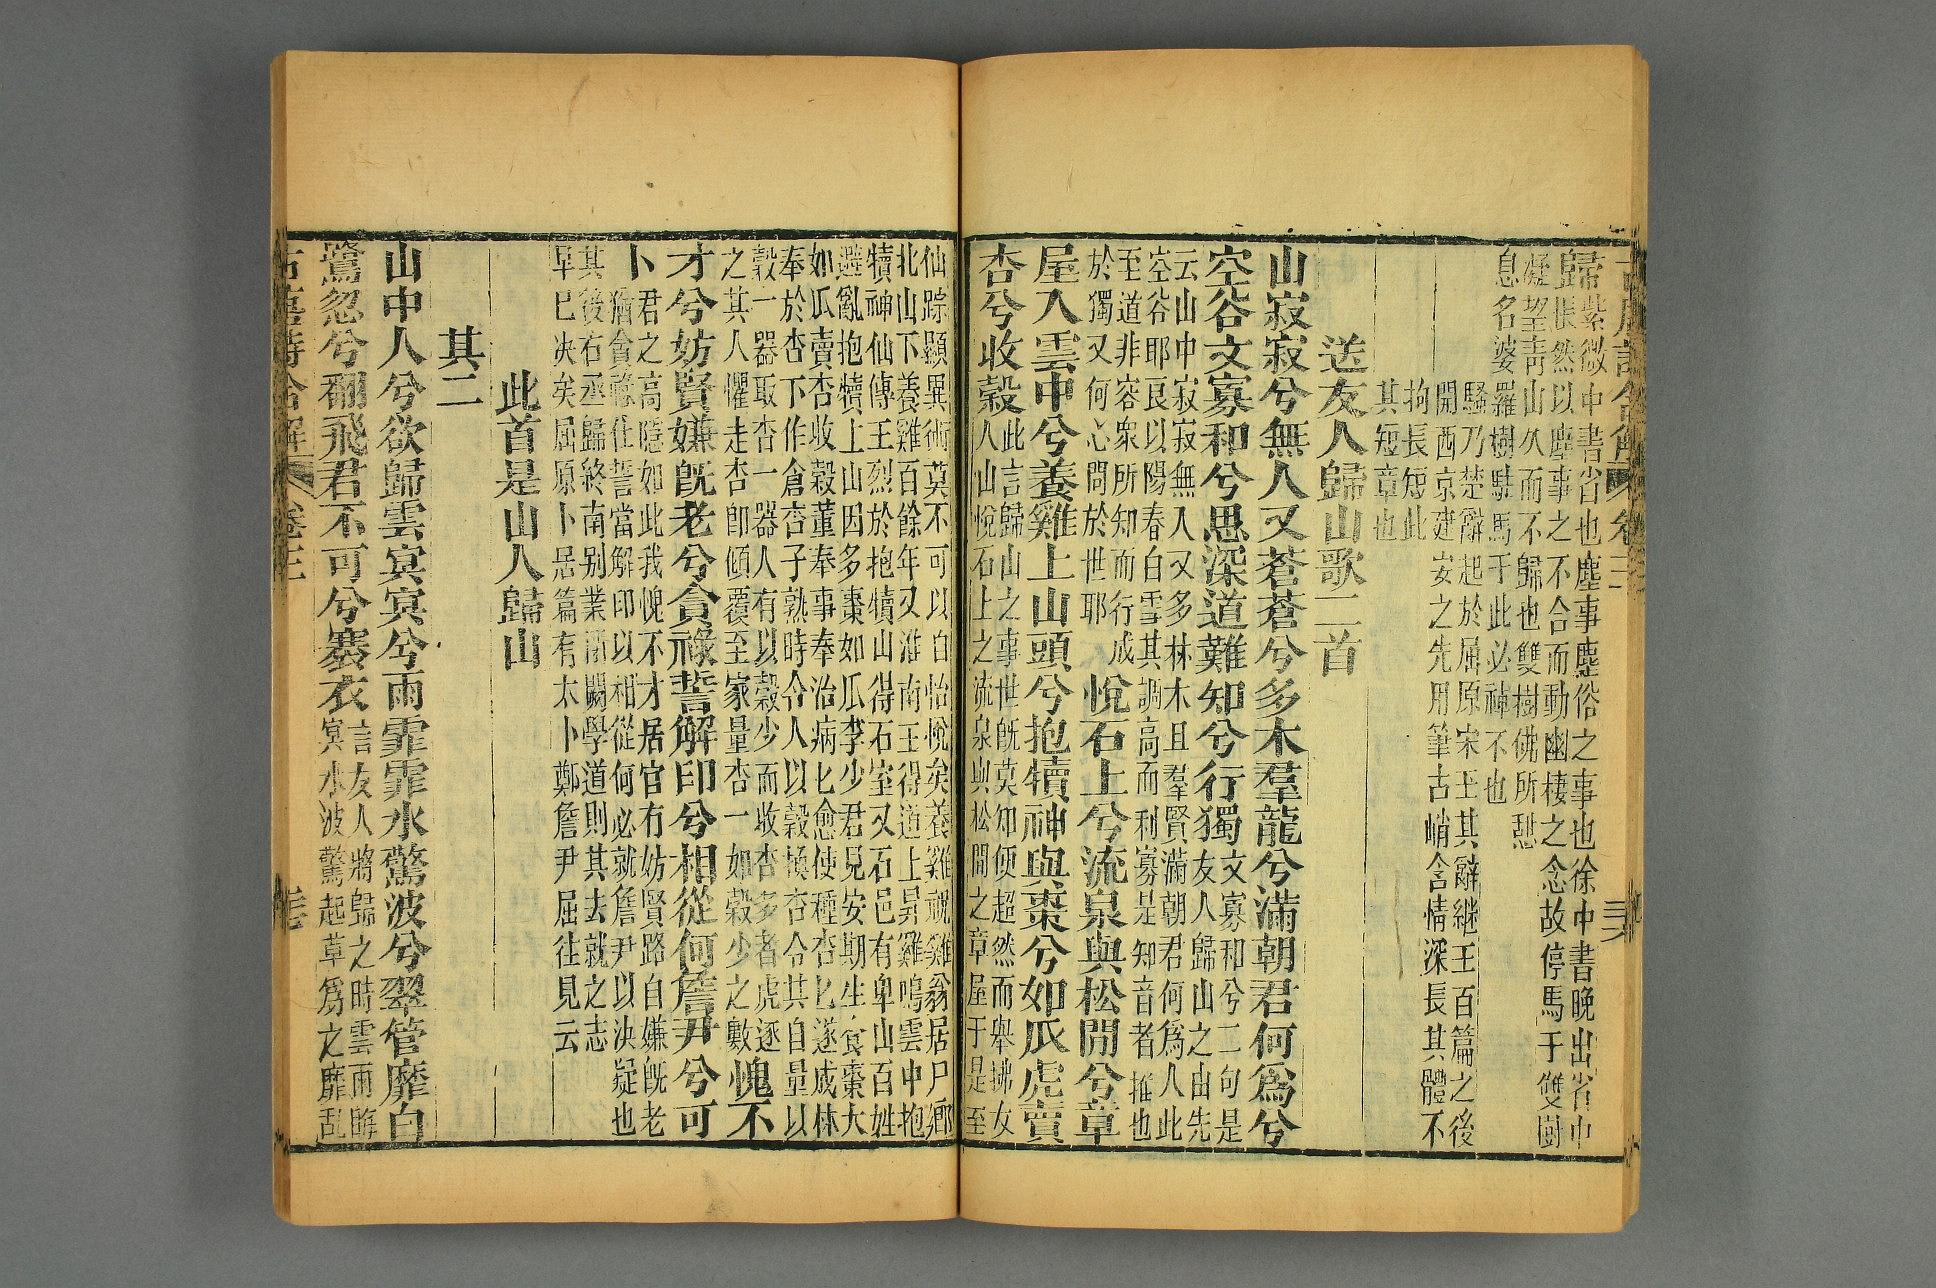 歸紫微中書省也塵事塵俗之事也徐中書晚出省中
歸悵然以塵事之不合而動幽棲之念故停馬于雙樹
凝望青山久而不歸也雙樹佛所憇
息名婆羅樹駐馬于此必禱不也
騷乃楚辭起於屈原宋玉其辭繼王百篇之後
開西京建安之先用筆古峭含情深長其體不
拘長短此
其短章也
送友人歸山歌二首
山寂寂兮無人又蒼蒼兮多木羣龍兮滿朝君何爲兮
空谷文寡和兮思深道難知兮行獨
文寡和兮二句是
友人歸山之由先
云山中寂寂無人又多林木且羣賢滿朝君何爲人此
空谷耶良以陽春白雪其調高而利寡是知音者推也
至道非容衆所知而行成
於獨又何心問於世耶
悅石上兮流泉與松間兮章
屋入雲中兮養雞上山頭兮抱犢神與棗兮如瓜虎賣
杏兮收穀
此言歸山之事世旣莫知便超然而舉拂友
人山悅石上之流泉與松間之章屋于是至
仙踪顯異術莫不可以自怡悅矣養雞祝雞翁居尸鄉
北山下養雞百餘年又淮南王得道上昇雞鳴雲中抱
犢神仙傳王烈於抱犢山得石室又石邑有卑山百姓
避亂抱犢上山因多棗如瓜李少君見安期生食棗大
如瓜賣杏收穀董奉事奉治病匕愈使種杏匕遂成林
奉於杏下作倉杏子熟時令人以穀換杏令其自量以
穀一器取杏一器人有以穀少而收杏多者虎逐
之其人懼走杏卽傾覆至家量杏一如穀少之數
愧不
才兮妨賢嫌旣老兮貪祿誓解印兮相從何詹尹兮可
卜
君之高隱如此我愧不才居官有妨賢路自嫌旣老
猶貪戀仕誓當解印以相從何必就詹尹以決疑也
其後右丞歸終南别業浙闕學道則其去就之志
早已决矣屈原卜居篇有太卜鄭詹尹屈往見云
此首是山人歸山
其二
山中人兮欲歸雲冥冥兮雨霏霏水驚波兮翠管靡白
鷺忽兮翻飛君不可兮褰衣
言友人將歸之時雲雨晦
冥水波驚起草爲之靡乱